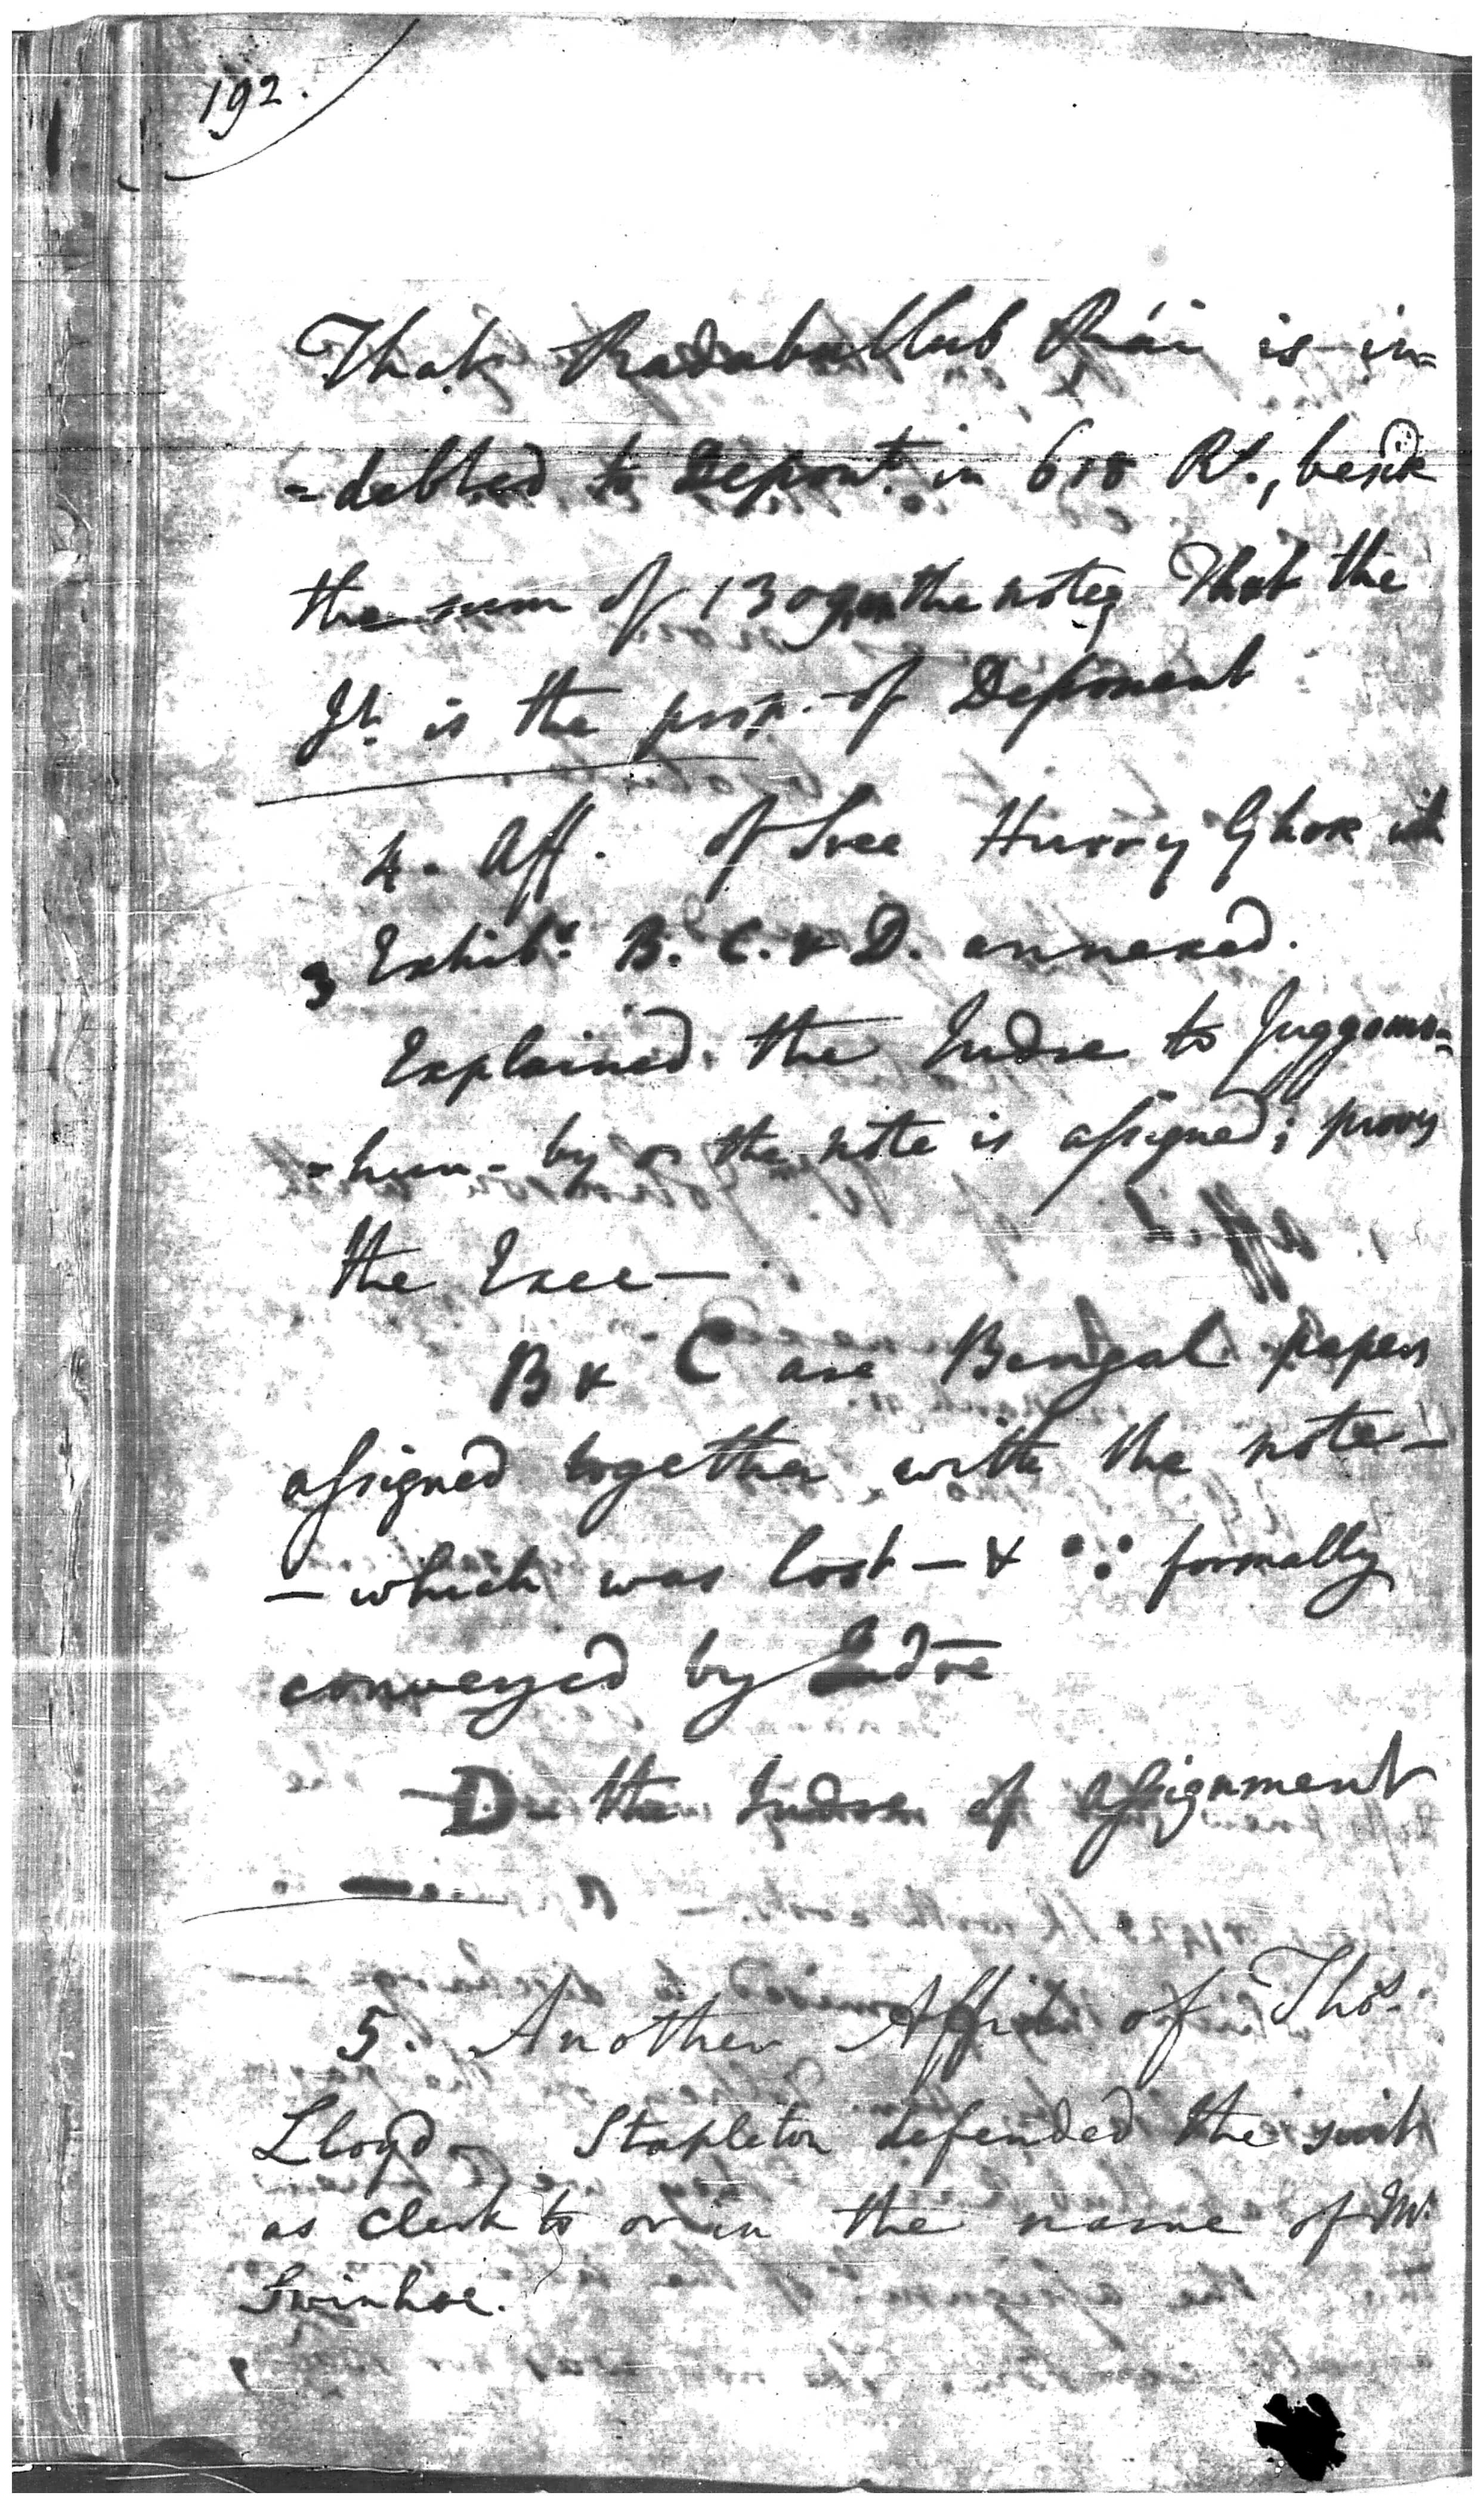 192.
That Radabullub Rái is in=
=debted to Depont. in 618 Rs., beside
the sum of 1309, on the note; That the
Jt. is the prop. of Deponent
4. Aff. of Sree Hurry Ghose with
3 Exhibs. B. C. & D. annexed.
Explained the Indre to Juggomo=
=hun - by wh the note is assigned; proves
the Exec—
B & C are Bengal papers
assigned together with the note—
— which was lost — & ∵ formally
conveyed by Indre
— D - the Indre of Assignment
5. Another Affidt of Thos.
Lloyd - Stapleton defended the suit
as Clerk to or in the name of Mr.
Swinhoe.